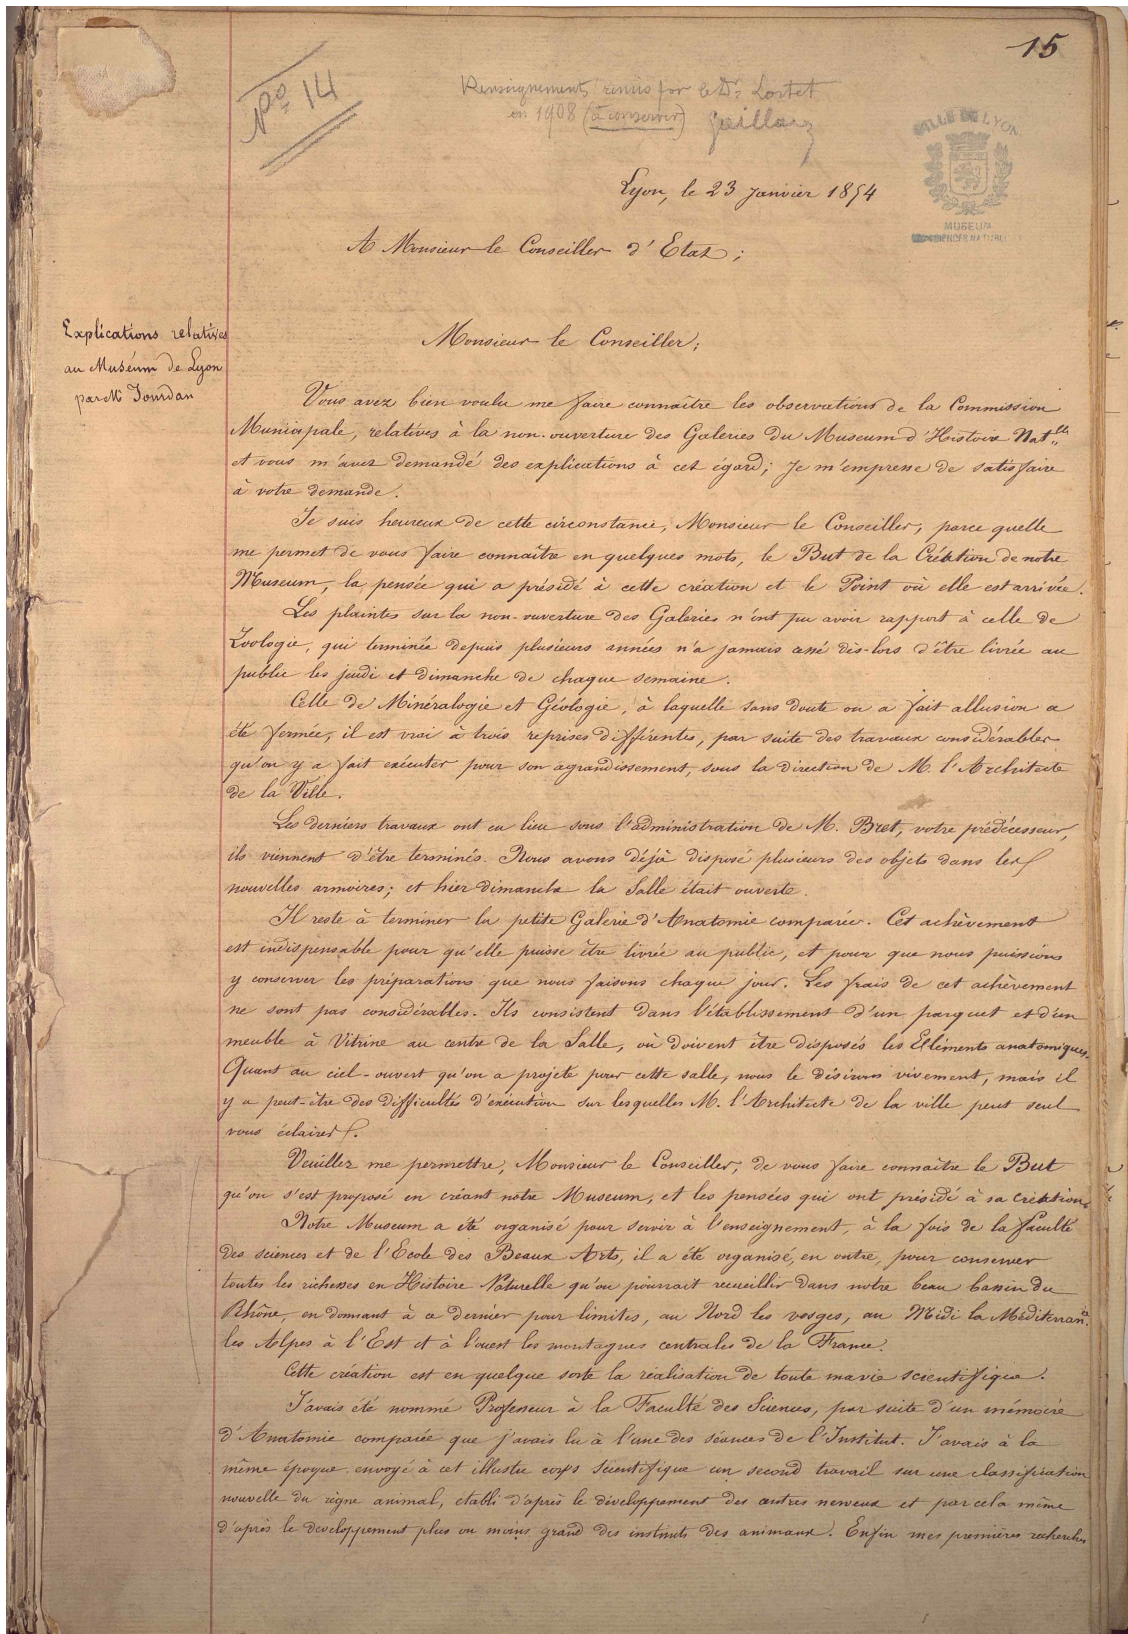 15
No 14
Renseignements remis par le Dr Lortet
en 1908 (à conserver)
VILLE DE LYON
MUSEUM
SCIENCES NATUREL
Lyon, le 23 Janvier 1854
A Monsieur le Conseiller d'Etat;
Explications relatives
au Muséum de Lyon
par Mr Jourdan
Monsieur le Conseiller;
Vous avez bien voulu me faire connaître les observations de la Commission
Municipale, relatives à la non-ouverture des Galeries du Museum d'Histoire Natlle
et vous m'avez demandé des explications à cet égard; Je m'empresse de satisfaire
à votre demande.
Je suis heureux de cette circonstance, Monsieur le Conseiller, parce quelle
me permet de vous faire connaître en quelques mots, le But de la Création de notre
Museum, la pensée qui a présidé à cette création et le Point où elle est arrivée.
Les plaintes sur la non-ouverture des Galeries n'ont pu avoir rapport à celle de
Zoologie, qui terminée depuis plusieurs années n'a jamais cessé dès-lors d'être livrée au
public les jeudi et dimanche de chaque semaine.
Celle de Minéralogie et Géologie, à laquelle sans doute on a fait allusion a
été fermée, il est vrai à trois reprises différentes, par suite des travaux considérables
qu'on y a fait exécuter pour son agrandissement, sous la direction de M. l'Architecte
de la Ville.
Les derniers travaux ont eu lieu sous l'administration de M. Bret, votre prédécesseur,
ils viennent d'être terminés. Nous avons déjà disposé plusieurs des objets dans les
nouvelles armoires; et hier dimanche la Salle était ouverte.
Il reste à terminer la petite Galerie d'Anatomie comparée. Cet achèvement
est indispensable pour qu'elle puisse être livrée au public, et pour que nous puissions
y conserver les préparations que nous faisons chaque jour. Les frais de cet achèvement
ne sont pas considérables. Ils consistent dans l'établissement d'un parquet et d'un
meuble à Vitrine au centre de la Salle, où doivent être disposés les Eléments anatomiques.
Quant au ciel-ouvert qu'on a projeté pour cette salle, nous le désirons vivement, mais il
y a peut-être des difficultés d'exécution sur lesquelles M. l'Architecte de la ville peut seul
vous éclairer.
Veuillez me permettre, Monsieur le Conseiller, de vous faire connaître le But
qu'on s'est proposé en créant notre Museum, et les pensées qui ont présidé à sa création.
Notre Museum a été organisé pour servir à l'enseignement, à la fois de la faculté
des sciences et de l'Ecole des Beaux Arts, il a été organisé, en outre, pour conserver
toutes les richesses en Histoire Naturelle qu'on pourrait recueillir dans notre beau bassin du
Rhône, en donnant à ce dernier pour limites, au Nord les vosges, au Midi la Méditerranée
les Alpes à l'Est et à l'ouest les montagnes centrales de la France.
Cette création est en quelque sorte la réalisation de toute ma vie scientifique.
J'avais été nommé Professeur à la Faculté des Sciences, par suite d'un mémoire
d'Anatomie comparée que j'avais lu à l'une des séances de l'Institut. J'avais à la
même époque envoyé à cet illustre corps Scientifique un second travail sur une classification
nouvelle du règne animal, établi d'après le développement des centres nerveux et par cela même
d'après le développement plus ou moins grand des instincts des animaux. Enfin mes premières recherches